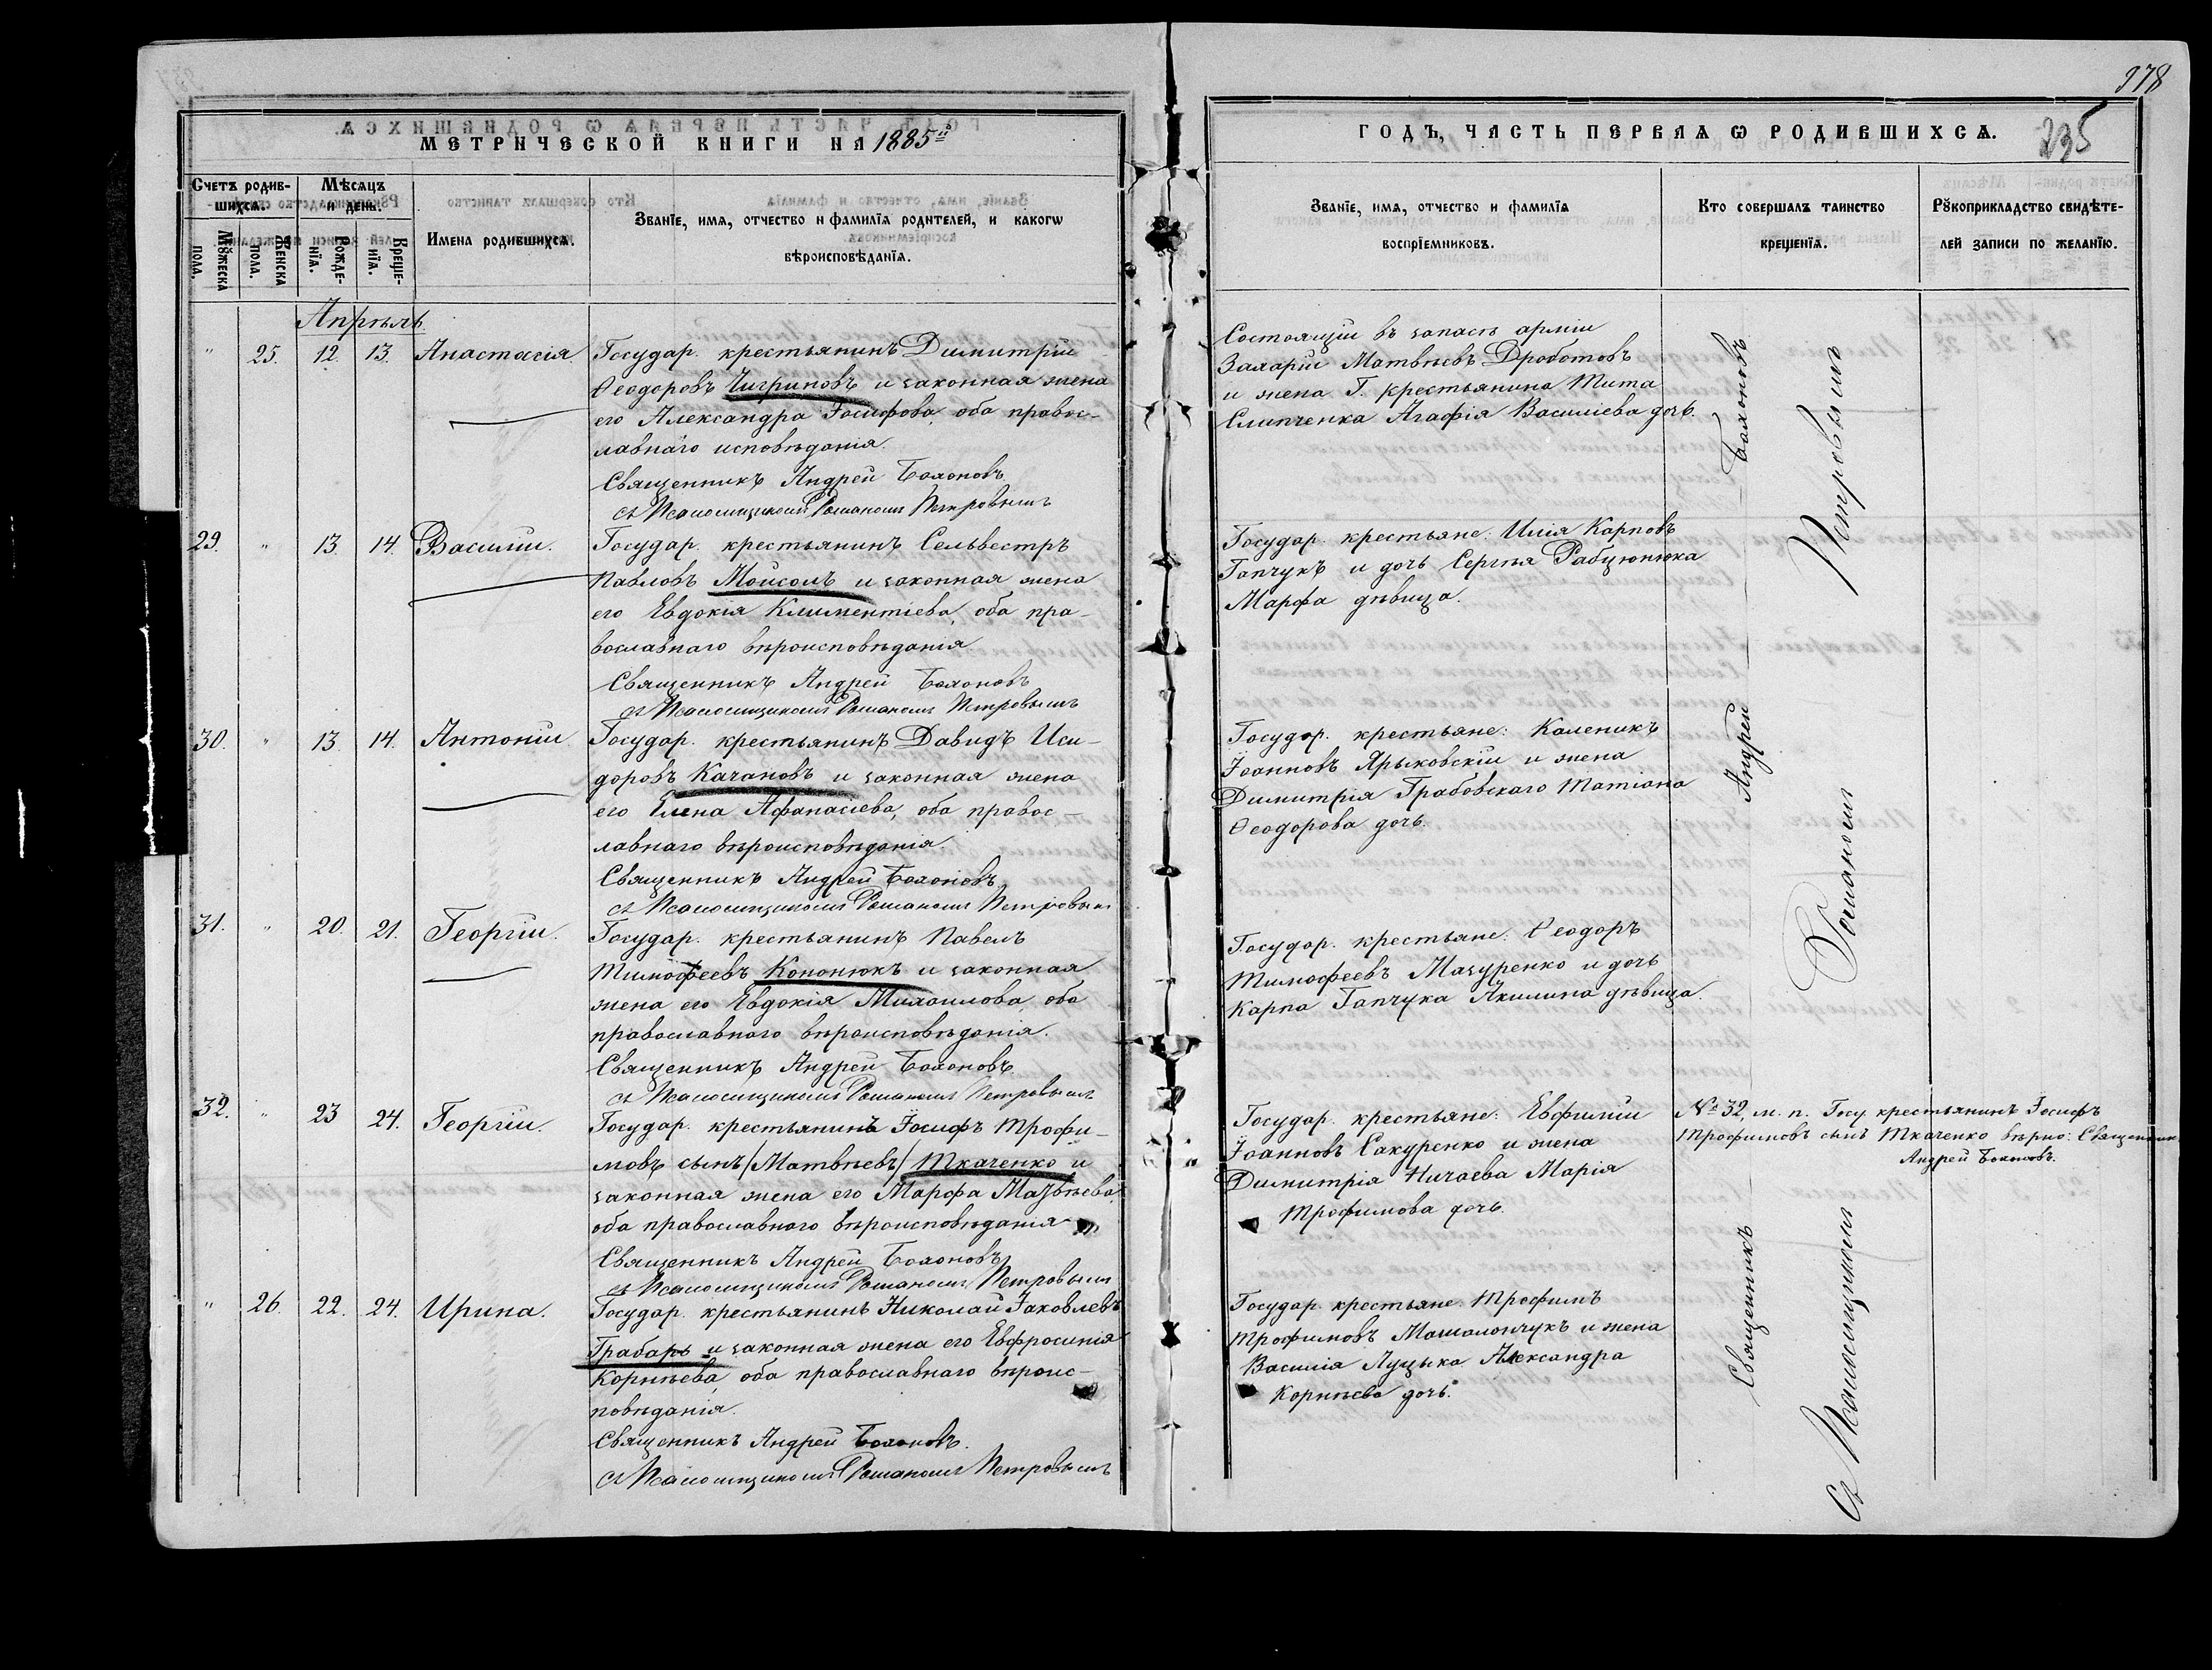 378
МЕТРИЧЕСКОЙ КНИГИ НА 1885й
ГОДЪ, ЧАСТЬ ПЕРВАЯ Ѡ РОДИВШИХСѦ.
235
Счетъ родив-
шихсѧ.
Мꙋжеска
пола.
Женска
пола.
Мѣсѧцъ
и день.
Рожде-
нїѧ.
Креще-
нїѧ.
Имена родившихсѧ.
Званїе, имѧ, отчество и фамилїѧ родителей, и какогѡ
вѣроисповѣданїѧ.
Званїе, имѧ, отчество и фамилїѧ
воспрїемниковъ.
Кто совершалъ таинство
крещенїѧ.
Рꙋкоприкладство свидѣте-
лей записи по желанїю.
Апрѣль
" 25. 12. 13. Анастасія
Государ. крестьянинъ Димитрій
Ѳеодоровъ Чигриновъ и законная жена
его Александра Іосифова, оба правос-
лавнаго исповѣданія.
Священникъ Андрей Болоновъ
съ Псаломщикомъ Романомъ Петровымъ
Состоящій въ запасѣ арміи
Захарій Матвѣевъ Дроботовъ
и жена Г. крестьянина Тита
Слипченка Агафія Василіева дочь.
29. " 13. 14. Василій.
Государ. крестьянинъ Сельвестръ
Павловъ Мойсомъ и законная жена
его Евдокія Климентіева, оба пра-
вославнаго вѣроисповѣданія
Священникъ Андрей Болоновъ
съ Псаломщикомъ Романомъ Петровымъ
Государ. крестьяне: Илія Карповъ
Гапчукъ и дочь Сергѣя Рабцюнюка
Марфа дѣвица.
30. " 13. 14. Антоній
Государ. крестьянинъ Давидъ Иси-
доровъ Качановъ и законная жена
его Елена Афанасіева, оба правос-
лавнаго вѣроисповѣданія.
Священникъ Андрей Болоновъ
съ Псаломщикомъ Романомъ Петровым
Государ. крестьяне: Каленикъ
Іоанновъ Ярыковскій и жена
Димитрія Грабовскаго Татіана
Ѳеодорова дочь.
31. " 20. 21. Георгій.
Государ. крестьянинъ Павелъ
Тимофеевъ Кононюкъ и законная
жена его Евдокія Михаилова, оба
православнаго вѣроисповѣданія.
Священникъ Андрей Болоновъ.
съ Псаломщикомъ Романомъ Петровымъ
Государ. крестьяне: Ѳеодоръ
Тимофеевъ Мазуренко и дочь
Карпа Гапчука Акилина дѣвица.
32. " 23 24. Георгій.
Государ. крестьянинъ Іосифъ Трофи-
мовъ сынъ /Матвѣевъ/ Ткаченко и
законная жена его Марфа Матвѣева
оба православнаго вѣроисповѣданія
Священникъ Андрей Болоновъ
съ Псаломщикомъ Романомъ Петровым
Государ. крестьяне: Евфимій
Іоанновъ Сакуренко и жена
Димитрія Ничаева Марія
Трофимова дочь.
№ 32, м. п. Госу. крестьянинъ Іосифъ
Трофимовъ сынъ Ткаченко вѣрно: Священник
Андрей Болоновъ.
" 26. 22. 24. Ирина.
Государ. крестьянинъ Николай Іаковлевъ
Грабарь и законная жена его Евфросинія
Корнѣева, оба православнаго вѣроис-
повѣданія.
Священникъ Андрей Болоновъ.
съ Псаломщикомъ Романомъ Петровымъ
Государ. крестьяне: Трофимъ
Трофимовъ Машалончукъ и жена
Василія Луцыка Александра
Корнѣева дочь.
Священникъ Андрей Болоновъ
съ Псаломщикомъ Романомъ Петровымъ